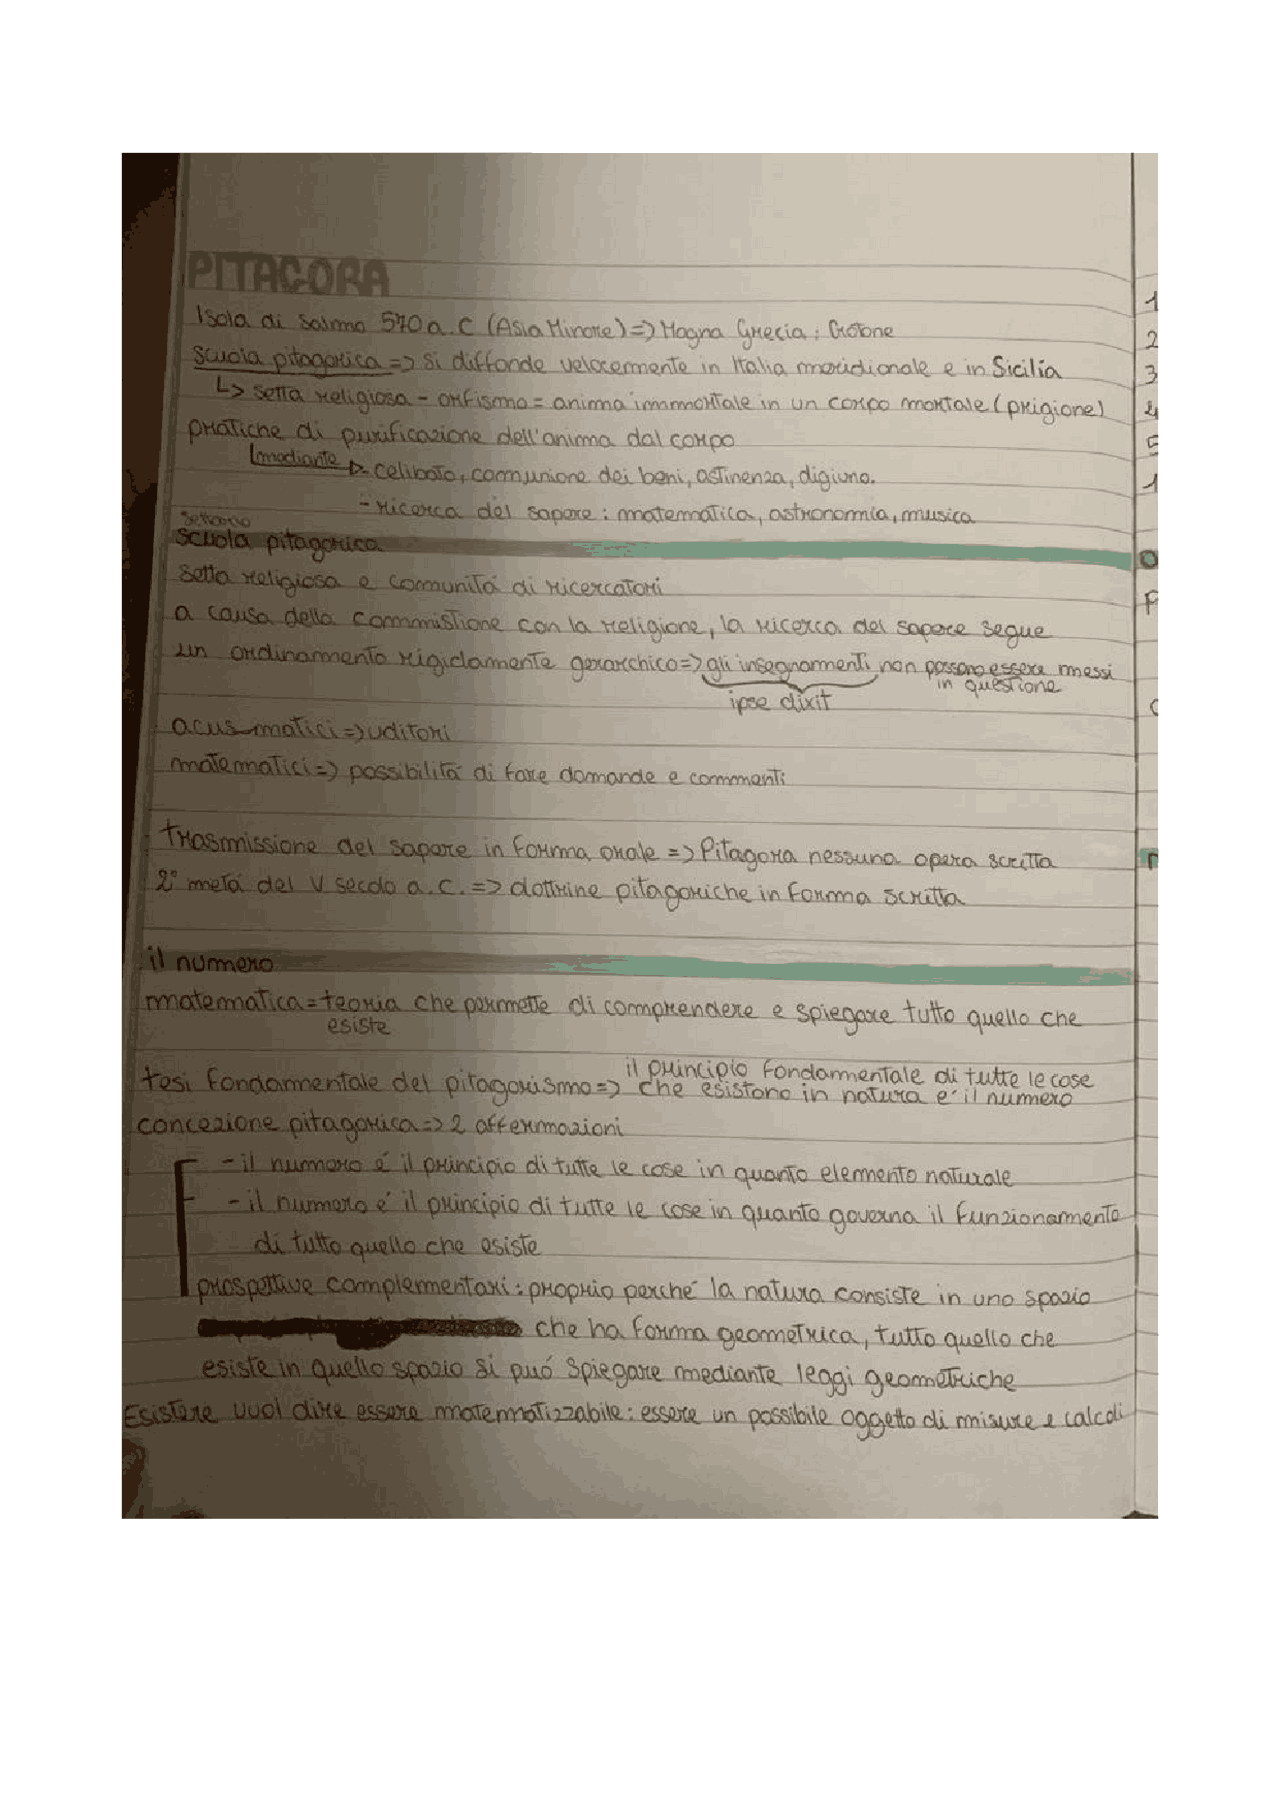 PITAGORA
Isola di Salmo 570 a.C (Asia Minore) => Magna Grecia: Crotone
Scuola pitagorica => si diffonde velocemente in Italia meridionale e in Sicilia
↳ setta religiosa - orfismo = anima immortale in un corpo mortale (prigione)
pratiche di purificazione dell'anima dal corpo
mediante celibato, comunione dei beni, astinenza, digiuno.
- ricerca del sapere: matematica, astronomia, musica
Scuola pitagorica
setta religiosa e comunitá di ricercatori
a causa della commistione con la religione, la ricerca del sapere segue
un ordinamento rigidamente gerarchico => gli insegnamenti non possono essere messi
in questione
ipse dixit
acusmatici => uditori
matematici => possibilitá di fare domande e commenti
trasmissione del sapere in forma orale => Pitagora nessuna opera scritta
2° metá del V secolo a.C. => dottrine pitagoriche in forma scritta
il numero
matematica = teoria che permette di comprendere e spiegare tutto quello che
esiste
il principio fondamentale di tutte le cose
tesi fondamentale del pitagorismo => che esistono in natura e' il numero
concezione pitagorica => 2 affermazioni
- il numero é il principio di tutte le cose in quanto elemento naturale
- il numero é il principio di tutte le cose in quanto governa il funzionamento
di tutto quello che esiste
prospettive complementari: proprio perché la natura consiste in uno spazio
che ha forma geometrica, tutto quello che
esiste in quello spazio si puó spiegare mediante leggi geometriche
Esistere vuol dire essere matematizzabile: essere un possibile oggetto di misure e calcoli